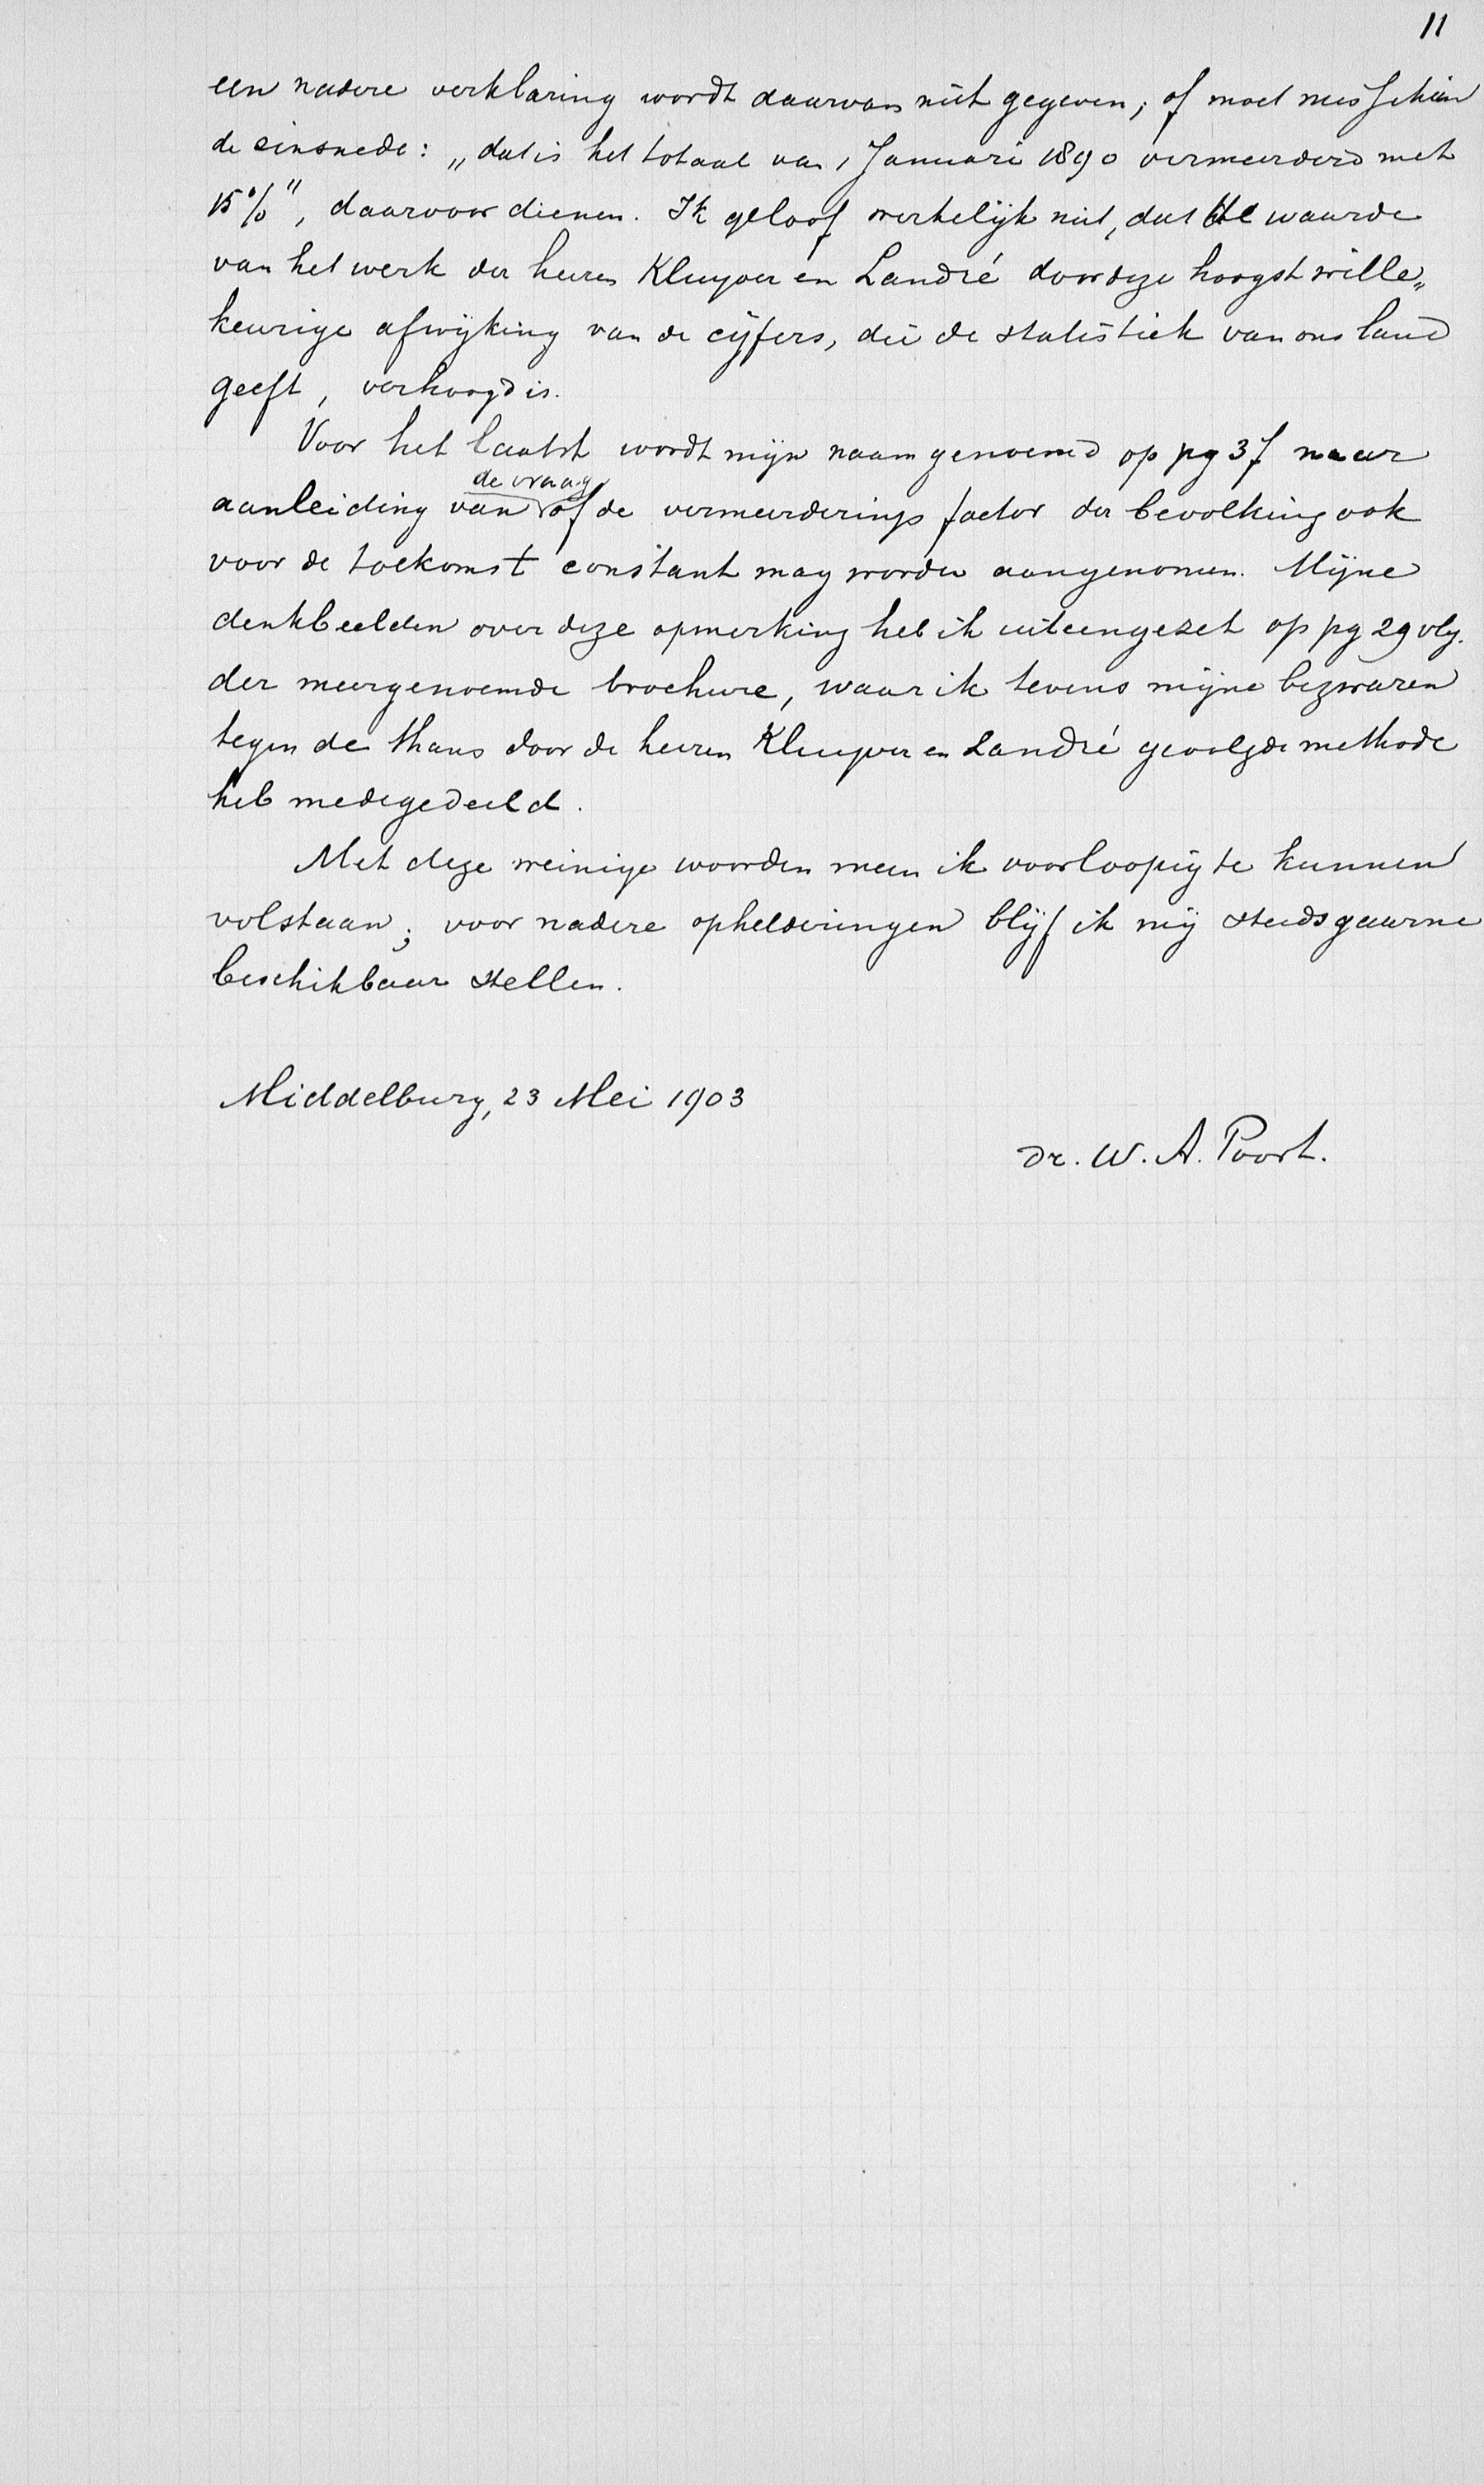 11
een nadere verklaring wordt daarvan niet gegeven; of moet misschien
de zinsnede: „dat is het totaal van 1 Januari 1890 vermeerderd met
15%", daarvoor dienen. Ik geloof werkelijk niet, dat de waarde
van het werk der heeren Kluyver en Landré door deze hoogst wille„
keurige afwijking van de cijfers, die de statistiek van ons land
geeft, verhoogd is.
Voor het laatst wordt mijn naam genoemd op pg 37 naar
de vraag
aanleiding van of de vermeerderings factor der bevolking ook
voor de toekomst constant mag worden aangenomen. Mijne
denkbeelden over deze opmerking heb ik uiteengezet op pg 29 vlg.
der meergenoemde brochure, waar ik tevens mijne bezwaren
tegen de thans door de heeren Kluyver en Landré gevolgde methode
heb medegedeeld.
Met deze weinige woorden meen ik voorloopig te kunnen
volstaan; voor nadere ophelderingen blijf ik mij steeds gaarne
beschikbaar stellen.
Middelburg, 23 Mei 1903
Dr. W. A. Poort.